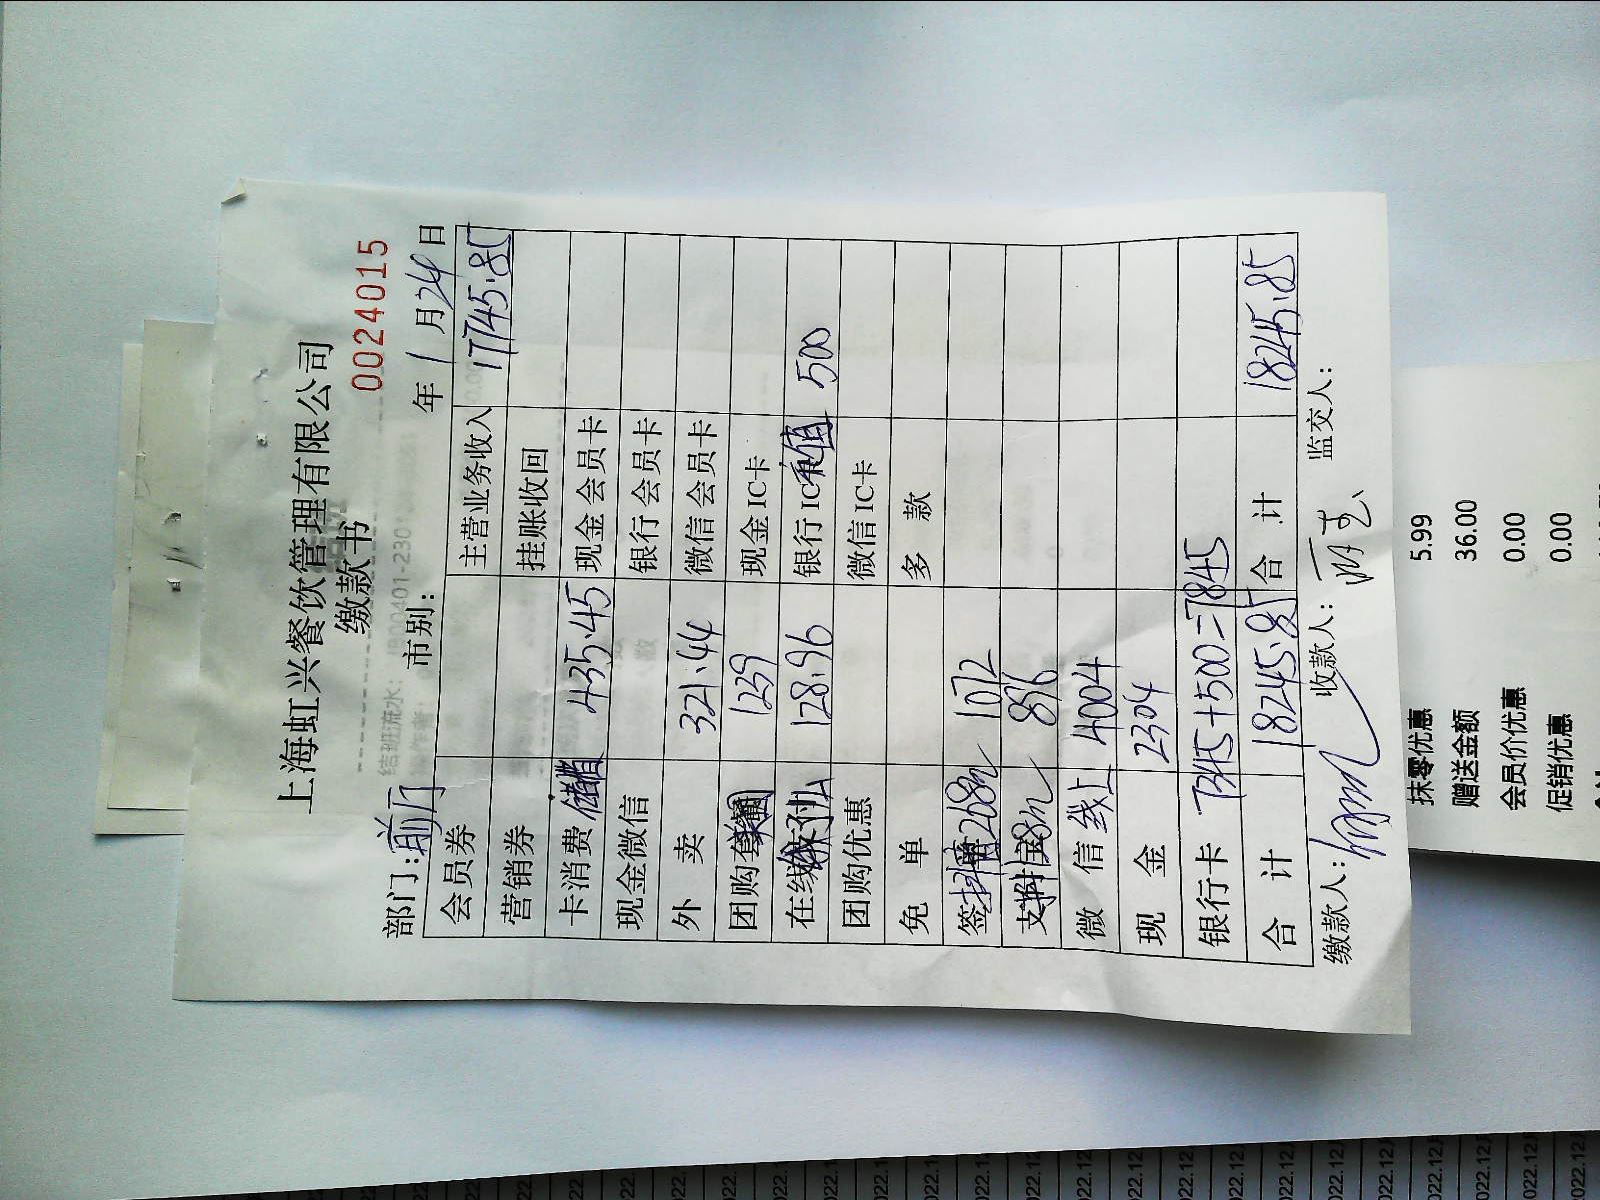 上海虹兴餐饮管理有限公司
缴款书
0024015
部门：前厅 市别： 年 1 月 24 日
会员券 主营业务收入 17745.85
营销券 挂账收回
卡消费 储值 435.45 现金会员卡
现金微信 银行会员卡
外 卖 321.44 微信会员卡
团购套餐 1239 现金IC卡
在线 128.96 银行IC 储值 500
团购优惠 微信IC卡
免 单 多 款
268 1072
支付宝 8 896
微 信 线上 4004
现 金 2304
银行卡 7345+500=7845
合 计 18245.85 合 计 18245.85
缴款人： 收款人： 监交人：
抹零优惠 5.99
赠送金额 36.00
会员价优惠 0.00
促销优惠 0.00